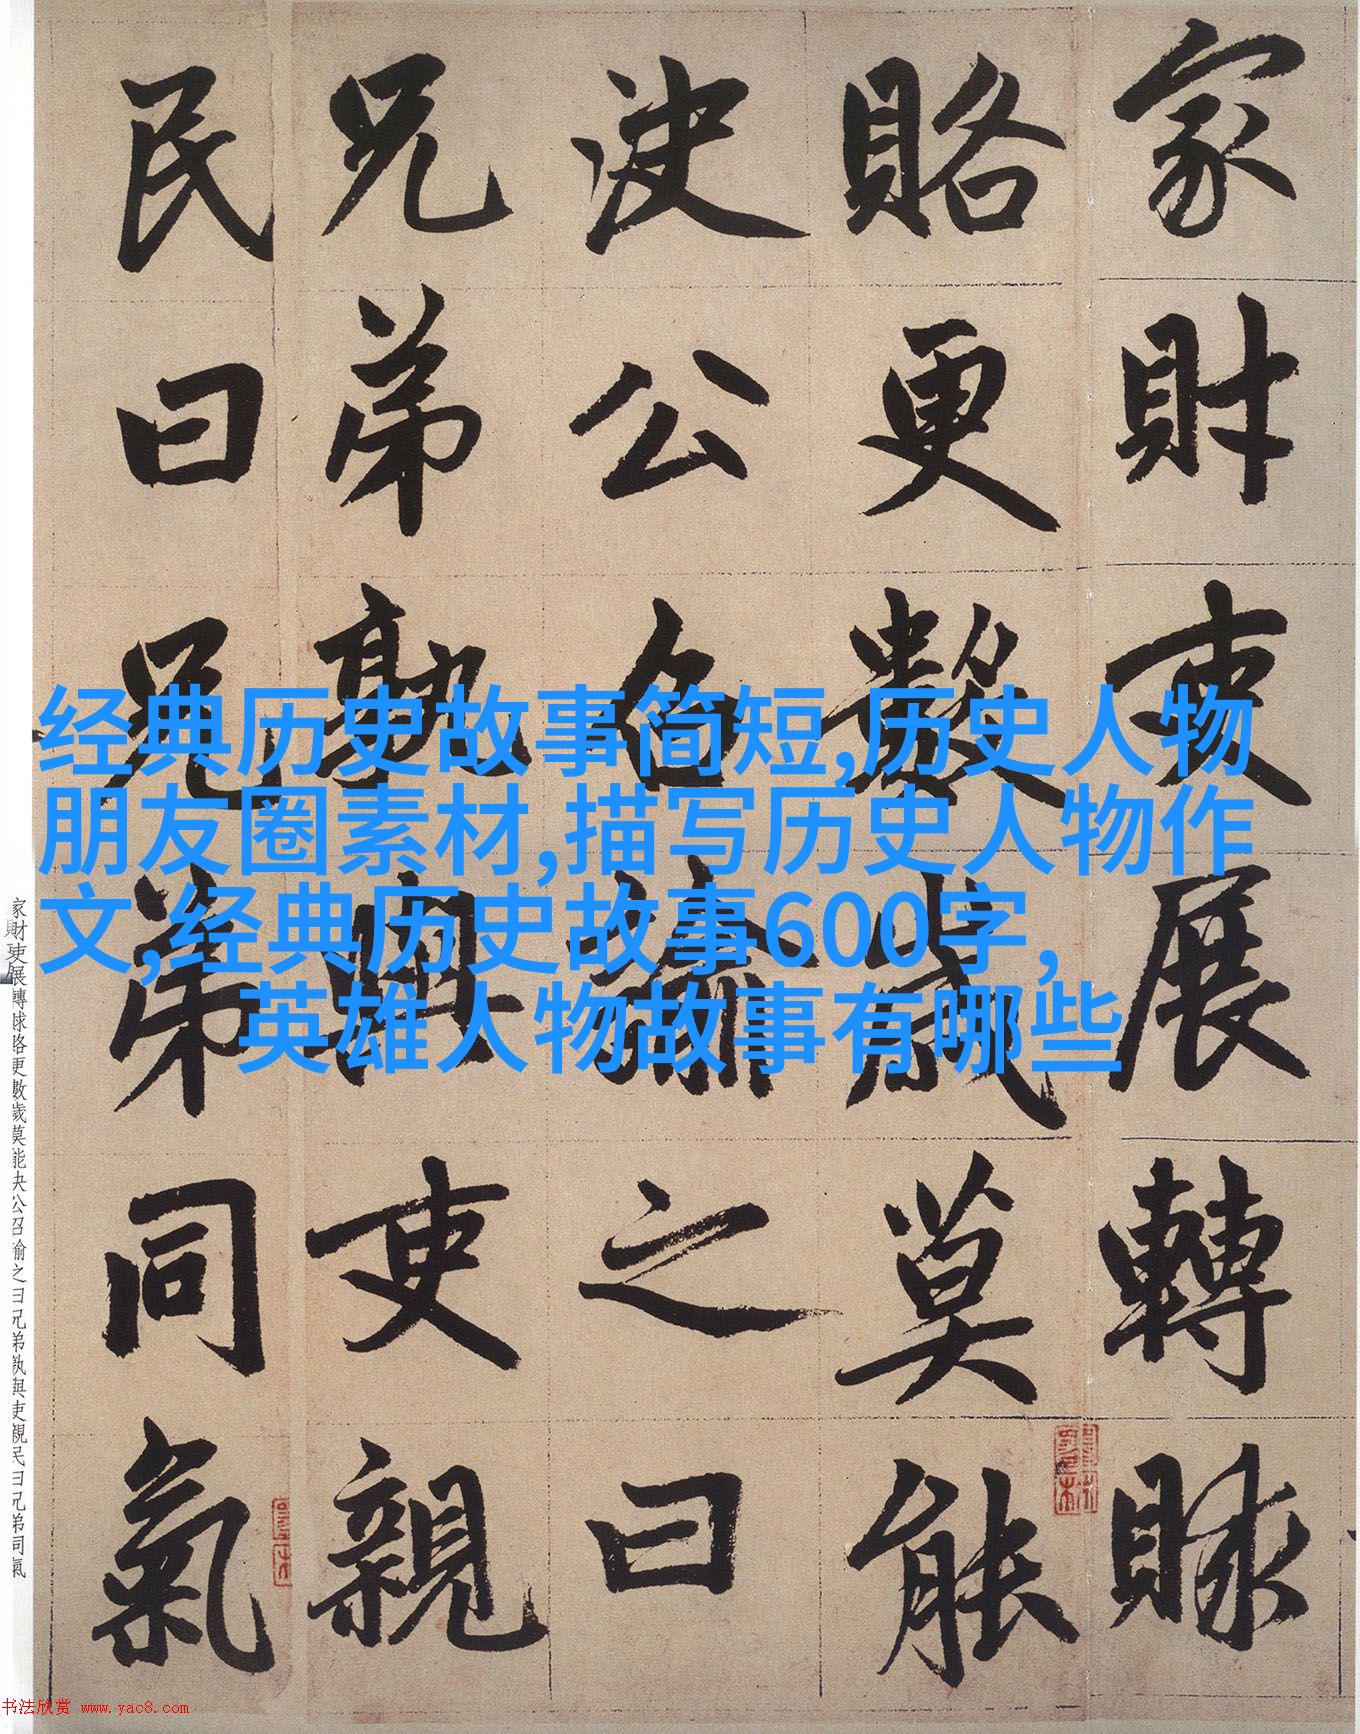 家財吏展轉賕
賂更數歲莫能
決公召諭之曰
兄弟孰與吏親
民曰兄弟同氣
经典历史故事简短,历史人物
朋友圈素材,描写历史人物作
文,经典历史故事600字,
英雄人物故事有哪些
家財吏展轉賕賂更數歲莫能決公召諭之曰兄弟孰與吏親民曰兄弟同氣
书法欣赏 www.yac8.com